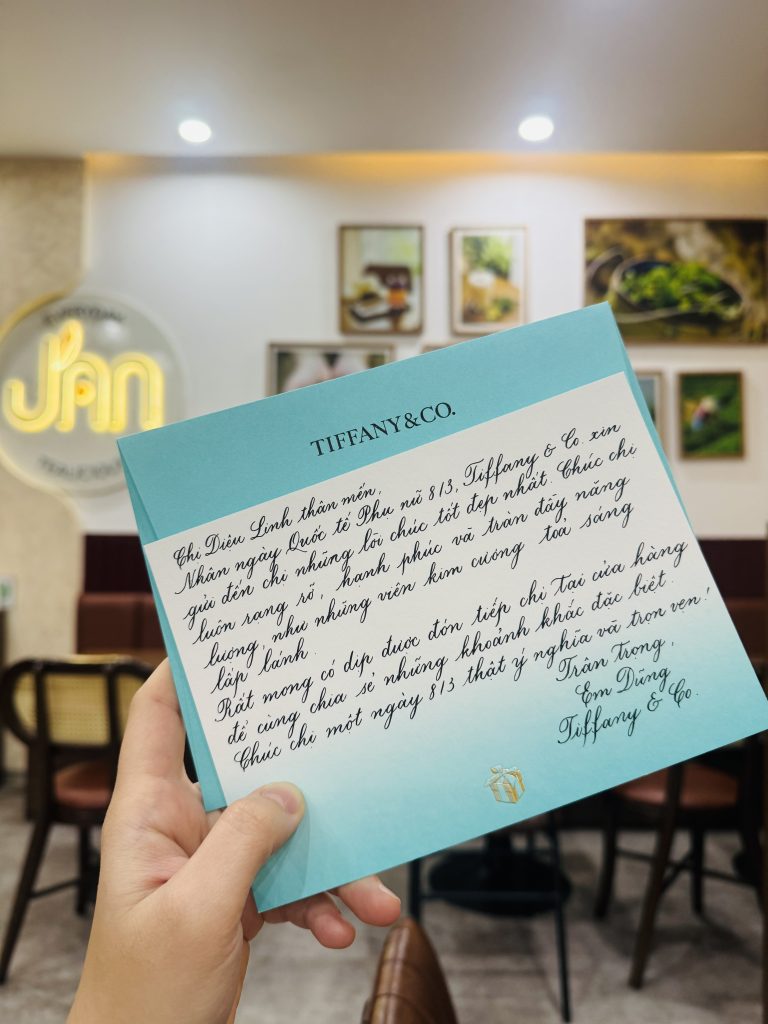 JAN
TIFFANY&CO.
Chị Diệu Linh thân mến,
Nhân ngày Quốc tế Phụ nữ 8/3, Tiffany & Co. xin
gửi đến chị những lời chúc tốt đẹp nhất. Chúc chị
luôn rạng rỡ, hạnh phúc và tràn đầy năng
lượng, như những viên kim cương toả sáng
lấp lánh.
Rất mong có dịp được đón tiếp chị tại cửa hàng
để cùng chia sẻ những khoảnh khắc đặc biệt.
Chúc chị một ngày 8/3 thật ý nghĩa và trọn vẹn!
Trân Trọng,
Em Dũng
Tiffany & Co.